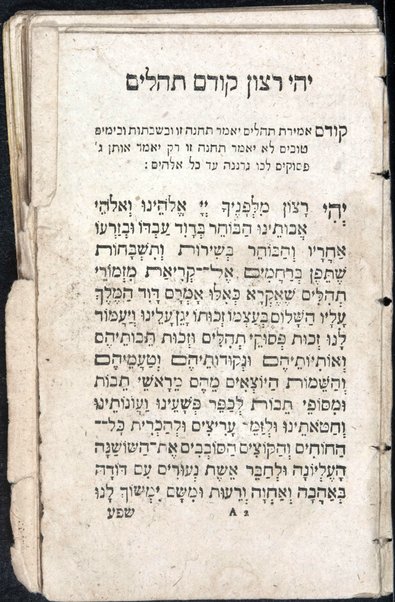 יהי רצון קודם תהלים
קודם אמירת תהלים יאמר תחנה זו ובשבתות ובימים
טובים לא יאמר תחנה זו רק יאמר אותן ג׳
פסוקים לכו נרננה עד כל אלהים :
יְהִי רָצוֹן מִלְּפָנֶיךָ יְיָ אֱלֹהֵינוּ וֵאלֹהֵי
אֲבוֹתֵינוּ הַבּוֹחֵר בְּדָוִד עַבְדּוֹ וּבְזַרְעוֹ
אַחֲרָיו וְהַבּוֹחֵר בְּשִׁירוֹת וְתִשְׁבָּחוֹת
שֶׁתֵּפֶן בְּרַחֲמִים אֶל־קְרִיאַת מִזְמוֹרֵי
תְהִלִּים שֶׁאֶקְרָא כְּאִלּוּ אֲמָרָם דָּוִד הַמֶּלֶךְ
עָלָיו הַשָּׁלוֹם בְּעַצְמוֹ זְכוּתוֹ יָגֵן עָלֵינוּ וְיַעֲמוֹד
לָנוּ זְכוּת פְּסוּקֵי תְהִלִּים וּזְכוּת תֵּבוֹתֵיהֶם
וְאוֹתִיוֹתֵיהֶם וּנְקוּדוֹתֵיהֶם וְטַעֲמֵיהֶם
וְהַשֵּׁמוֹת הַיּוֹצְאִים מֵהֶם מֵרָאשֵׁי תֵבוֹת
וּמִסּוֹפֵי תֵבוֹת לְכַפֵּר פְּשָׁעֵינוּ וַעֲוֹנוֹתֵינוּ
וְחַטֹּאתֵינוּ וּלְזַמֵּר עָרִיצִים וּלְהַכְרִית כָּל־
הַחוֹחִים וְהַקּוֹצִים הַסּוֹבְבִים אֶת־הַשּׁוֹשַׁנָּה
הָעֶלְיוֹנָה וּלְחַבֵּר אֵשֶׁת נְעוּרִים עִם דּוֹדָהּ
בְּאַהֲבָה וְאַחֲוָה וְרֵעוּת וּמִשָּׁם יִמָּשׁוֹךְ לָנוּ
A 2 שפע